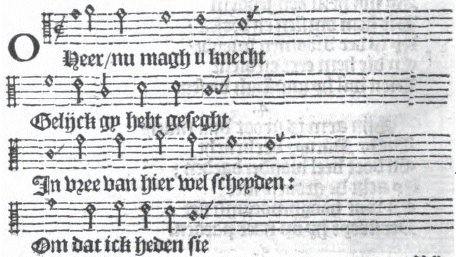 O Heer/nu magh u knecht
Gelijck gy hebt geseght
In vree van hier wel scheyden:
Om dat ick heden sie